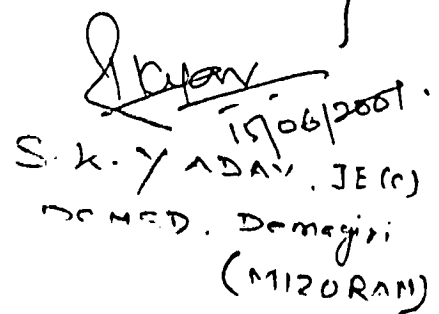 15/06/2001.
S. K. YADAV. JE (C)
Demagiri
(MIZORAM)